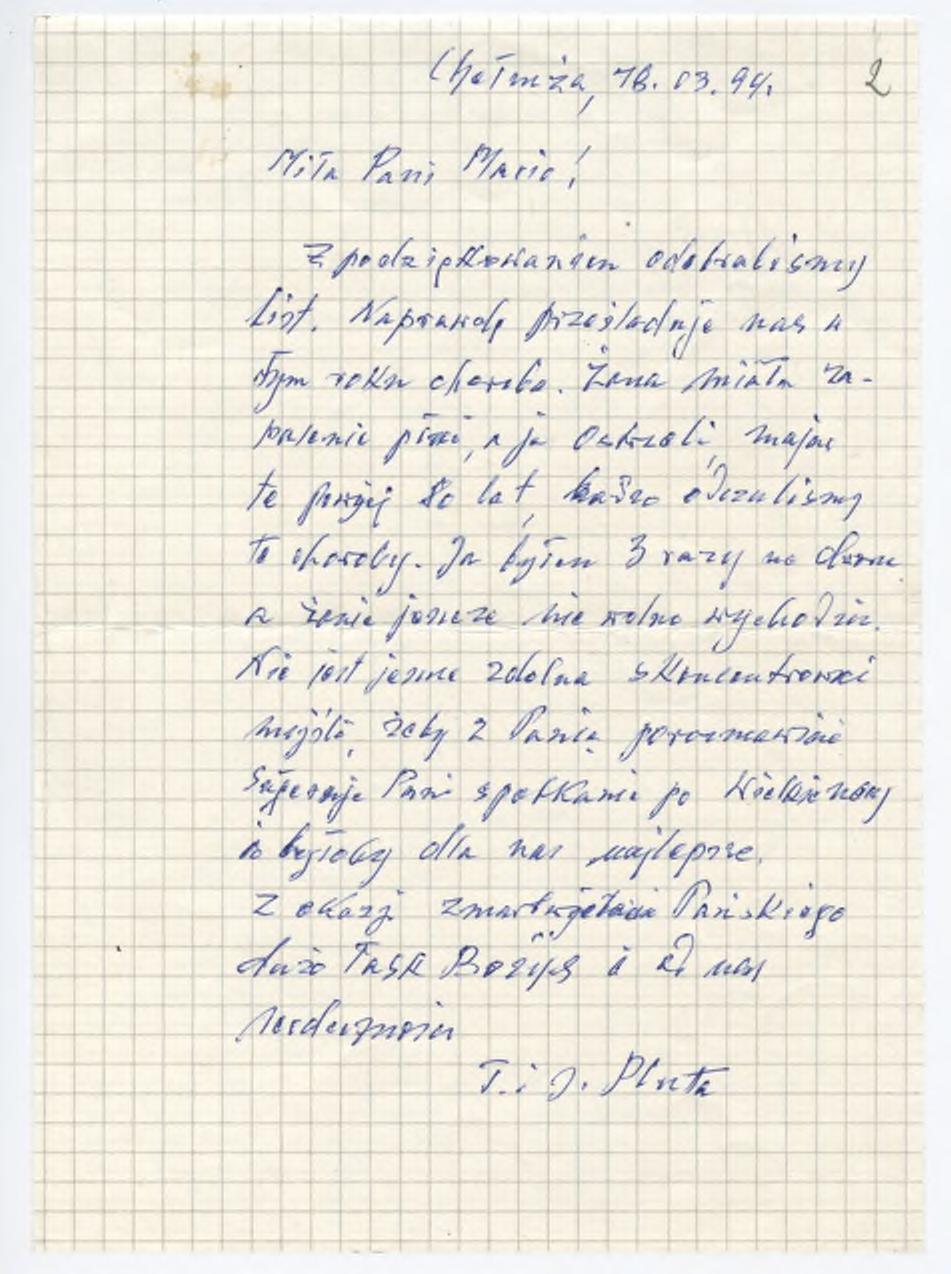 Chełmża, 18.03.94. 2
Miła Pani Mario!
Z podziękowaniem odebraliśmy
list. Naprawdę prześladuje nas w
tym roku choroba. Żona miała za-
palenie płuc, a ja oskrzeli, mając
te powyżej 80 lat, bardzo odczuliśmy
te choroby. Ja byłem 3 razy na dworze
a żonie jeszcze nie wolno wychodzić.
Nie jest jeszcze zdolna skoncentrować
myśli, żeby z Panią porozmawiać
Sugeruję Pani spotkanie po Wielkiejnocy
to byłoby dla nas najlepsze.
Z okazji zmartwychwstania Pańskiego
dużo Łask Bożych i od nas
serdeczności
T. i J. Pluta